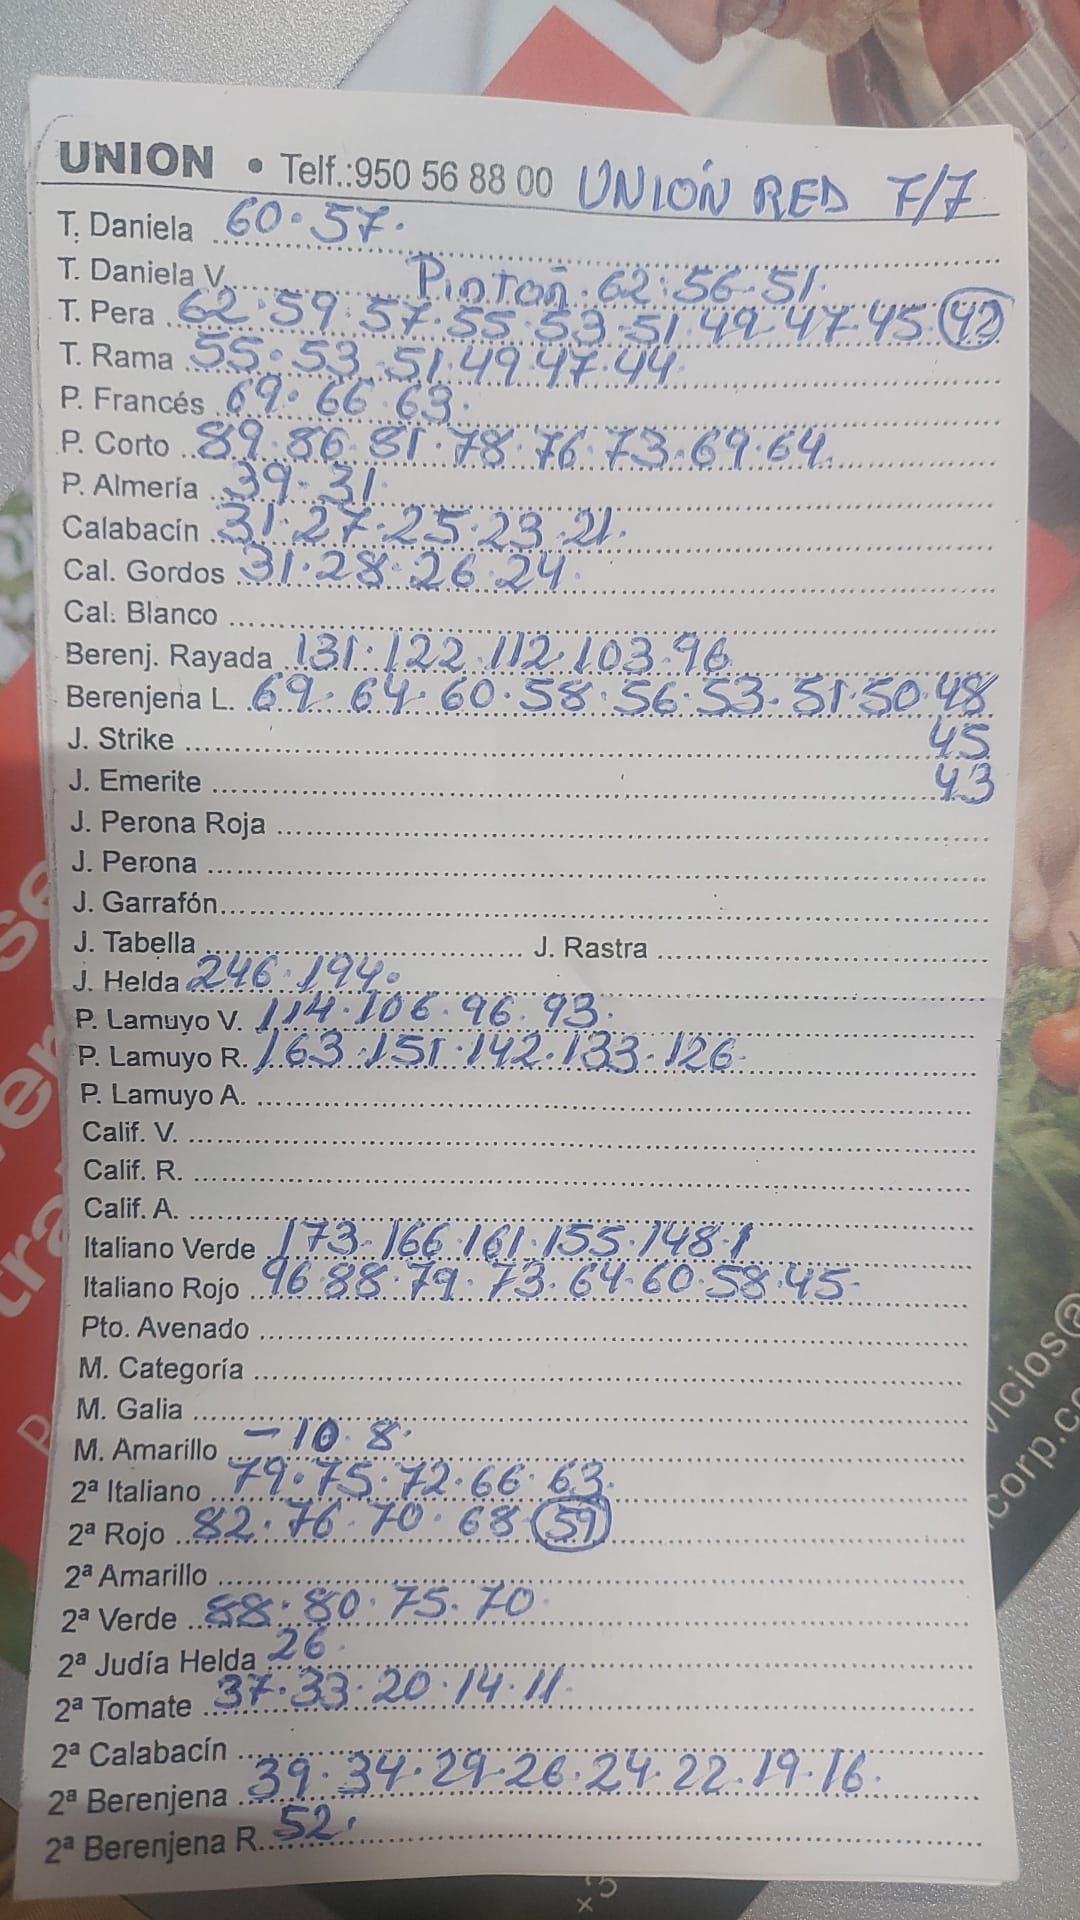 UNION • Telf.:950 56 88 00 UNIÓN RED 7/7
T. Daniela 60·57·
T. Daniela V. Pintón·62·56·51·
T. Pera 62·59·57·55·53·51·49·47·45·42
T. Rama 55·53·51·49·47·44·
P. Francés 69·66·63·
P. Corto 89·86·81·78·76·73·69·64·
P. Almería 39·31·
Calabacín 31·27·25·23·21·
Cal. Gordos 31·28·26·24·
Cal. Blanco
Berenj. Rayada 131·122·112·103·96
Berenjena L. 69·64·60·58·56·53·51·50·48
J. Strike 45
J. Emerite 43
J. Perona Roja
J. Perona
J. Garrafón
J. Tabella J. Rastra
J. Helda 246·194·
P. Lamuyo V. 114·106·96·93·
P. Lamuyo R. 163·151·142·133·126·
P. Lamuyo A.
Calif. V.
Calif. R.
Calif. A.
Italiano Verde 173·166·161·155·148·1
Italiano Rojo 96·88·79·73·64·60·58·45·
Pto. Avenado
M. Categoría
M. Galia
M. Amarillo -10·8·
2ª Italiano 79·75·72·66·63·
2ª Rojo 82·76·70·68 59
2ª Amarillo
2ª Verde 88·80·75·70·
2ª Judía Helda 26·
2ª Tomate 37·33·20·14·11·
2ª Calabacín
2ª Berenjena 39·34·29·26·24·22·19·16·
2ª Berenjena R. 52·
vicios@
corp.c